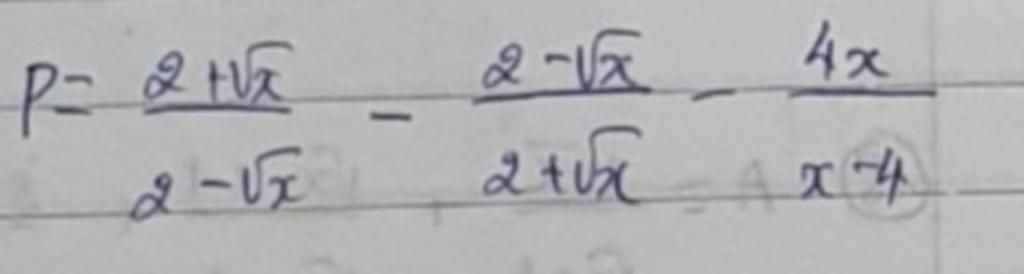 P = \frac{2+\sqrt{x}}{2-\sqrt{x}} - \frac{2-\sqrt{x}}{2+\sqrt{x}} - \frac{4x}{x-4}